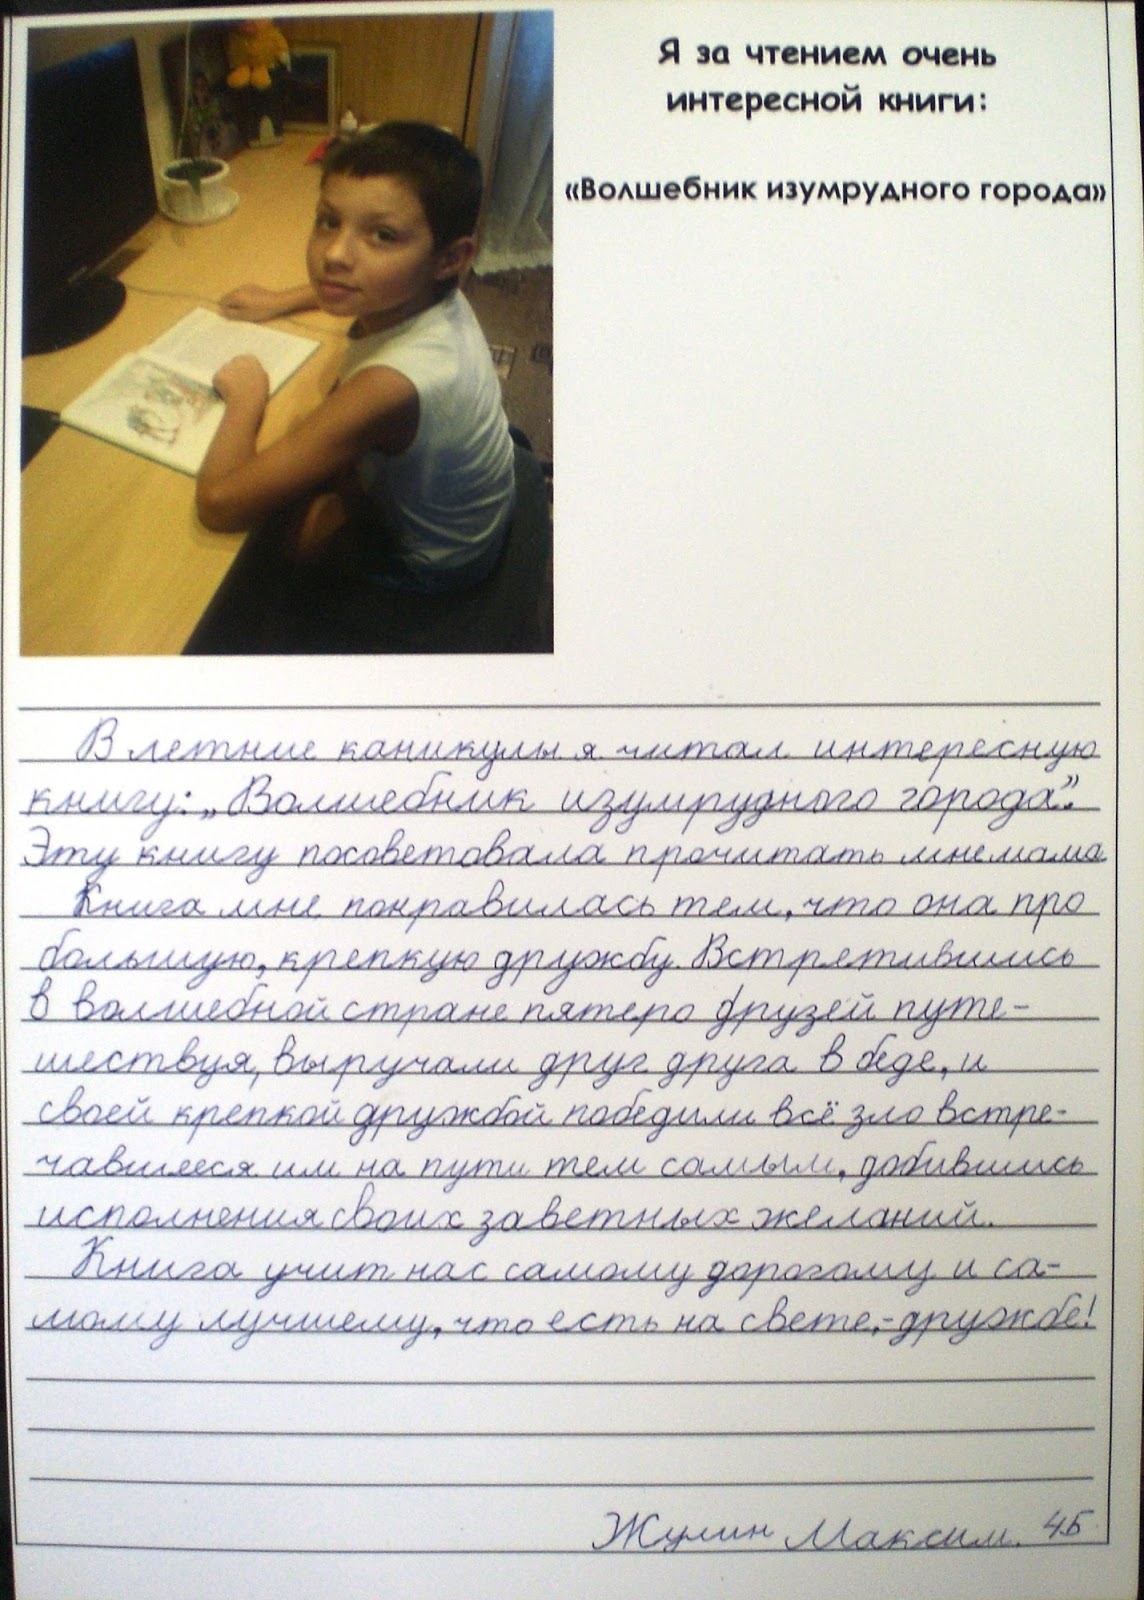 Я за чтением очень
интересной книги:
«Волшебник изумрудного города»
В летние каникулы я читал интересную
книгу: „Волшебник изумрудного города”.
Эту книгу посоветовала прочитать мне мама
Книга мне понравилась тем, что она про
большую, крепкую дружбу. Встретившись
в волшебной стране пятеро друзей путе-
шествуя, выручали друг друга в беде, и
своей крепкой дружбой победили всё зло встре-
чавшееся им на пути тем самым, добившись
исполнения своих заветных желаний.
Книга учит нас самому дорогому и са-
мому лучшему, что есть на свете,- дружбе!
Жулин Максим. 4Б